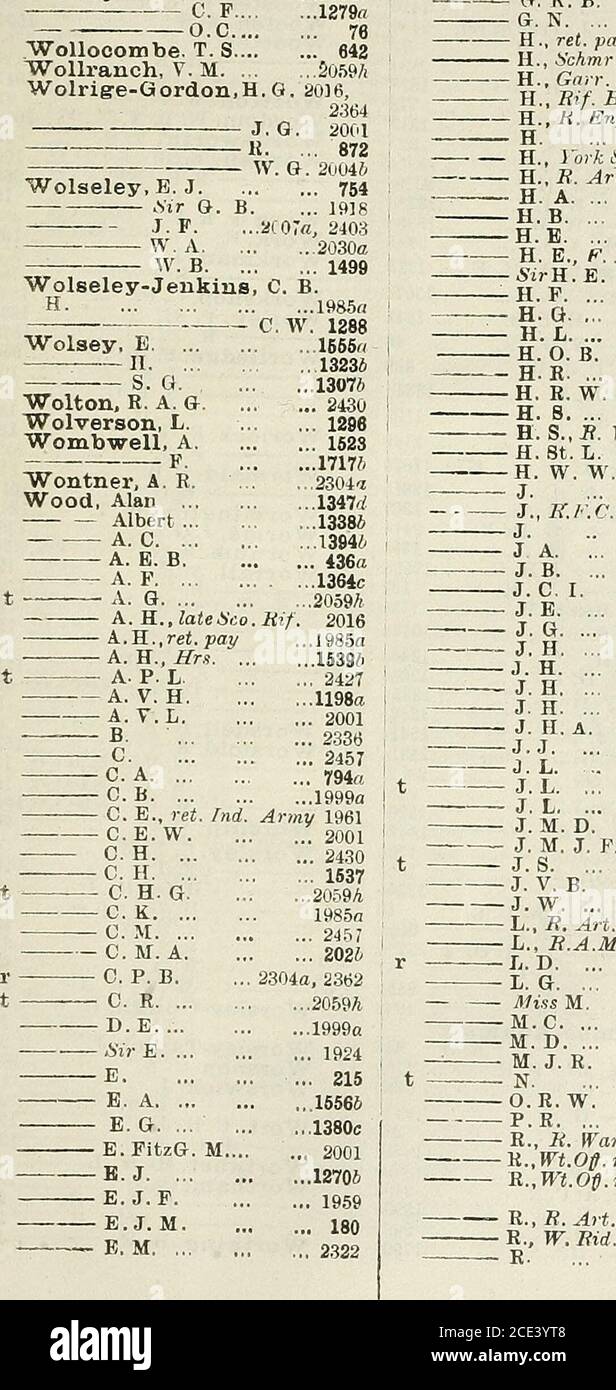 ——— C. F.... ...1279a
——— O. C.... ... 76
Wollocombe. T. S.... ... 642
Wollranch, V. M. ... ...2059h
Wolrige-Gordon, H. G. 2016,
2364
——— J. G. 2001
——— R. ... 872
——— W. G. 2004b
Wolseley, E. J. ... ... 754
——— Sir G. B. ... 1918
——— J. F. ...2007a, 2403
——— W. A. ... ...2030a
——— W. B. ... ... 1499
Wolseley-Jenkins, C. B.
H. ... ... ... ...1985a
——— C. W. 1288
Wolsey, E. ... ... ...1555a
——— H. ... ... ...1323b
——— S. G. ... ...1307b
Wolton, R. A. G. ... ... 2430
Wolverson, L. ... ... 1296
Wombwell, A. ... ... 1523
——— F. ... ...1717b
Wontner, A. R. ... ...2304a
Wood, Alan ... ... ...1347d
——— Albert ... ... ...1338b
——— A. C. ... ... ...1394b
——— A. E. B. ... ... 436a
——— A. F. ... ... ...1364c
t ——— A. G. ... ... ...2059h
——— A. H., late Sco. Rif. 2016
——— A. H., ret. pay ...1985a
——— A. H., Hrs. ... ...1539b
t ——— A. P. L. ... ... 2427
——— A. V. H. ... ...1198a
——— A. V. L. ... ... 2001
——— B. ... ... ... 2336
——— C. ... ... ... 2457
——— C. A. ... ... ... 794a
——— C. B. ... ... ...1999a
——— C. E., ret. Ind. Army 1961
——— C. E. W. ... ... 2001
——— C. H. ... ... ... 2430
——— C. H. ... ... ... 1537
t ——— C. H. G. ... ...2059h
——— C. K. ... ... 1985a
——— C. M. ... ... ... 2457
——— C. M. A. ... ... 202b
r ——— C. P. B. ... 2304a, 2362
t ——— C. R. ... ... ...2059h
——— D. E. ... ... ...1999a
——— Sir E. ... ... ... 1924
——— E. ... ... ... 215
——— E. A. ... ... ...1556b
——— E. G. ... ... ...1380c
——— E. FitzG. M.... ... 2001
——— E. J. ... ... ...1270b
——— E. J. F. ... ... 1959
——— E. J. M. ... ... 180
——— E. M. ... ... ... 2322
——— G. R. B.
——— G. N. ...
——— H., ret.
——— H.,
——— H., Garr.
——— H., Rif.
——— H., R.
——— H. ...
——— H., York
——— H., R.
——— H. A. ...
——— H. B. ...
——— H. E. ...
——— H. E.,
——— Sir H. E.
——— H. F. ...
——— H. G. ...
——— H. L. ...
——— H. O. B.
——— H. R. ...
——— H. R. W.
——— H. S. ...
——— H. S., R.
——— H. St. L.
——— H. W. W.
——— J. ...
——— J., R.F.C.
——— J. ..
——— J. A. ...
——— J. B. ...
——— J. C. I.
——— J. E. ...
——— J. G. ...
——— J. H. ...
——— J. H. ...
——— J. H. ...
——— J. H. ...
——— J. H. A.
——— J. J. ...
——— J. L. ..
t ——— J. L. ...
——— J. L. ...
——— J. M. D.
——— J. M. J. F.
t ——— J. S. ...
——— J. V. B.
——— J. W. ...
——— L., R. Art.
——— L.,
r ——— L. D. ...
——— L. G. ...
——— Miss M.
——— M. C. ...
——— M. D. ...
——— M. J. R.
t ——— N. ...
——— O. R. W.
——— P. R. ...
——— R., R.
——— R., Wt. Off.
——— R., Wt. Off.
——— R., R. Art.
——— R., W. Rid.
——— R. ...
alamy
Image ID: 2CE3YT8
www.alamy.com